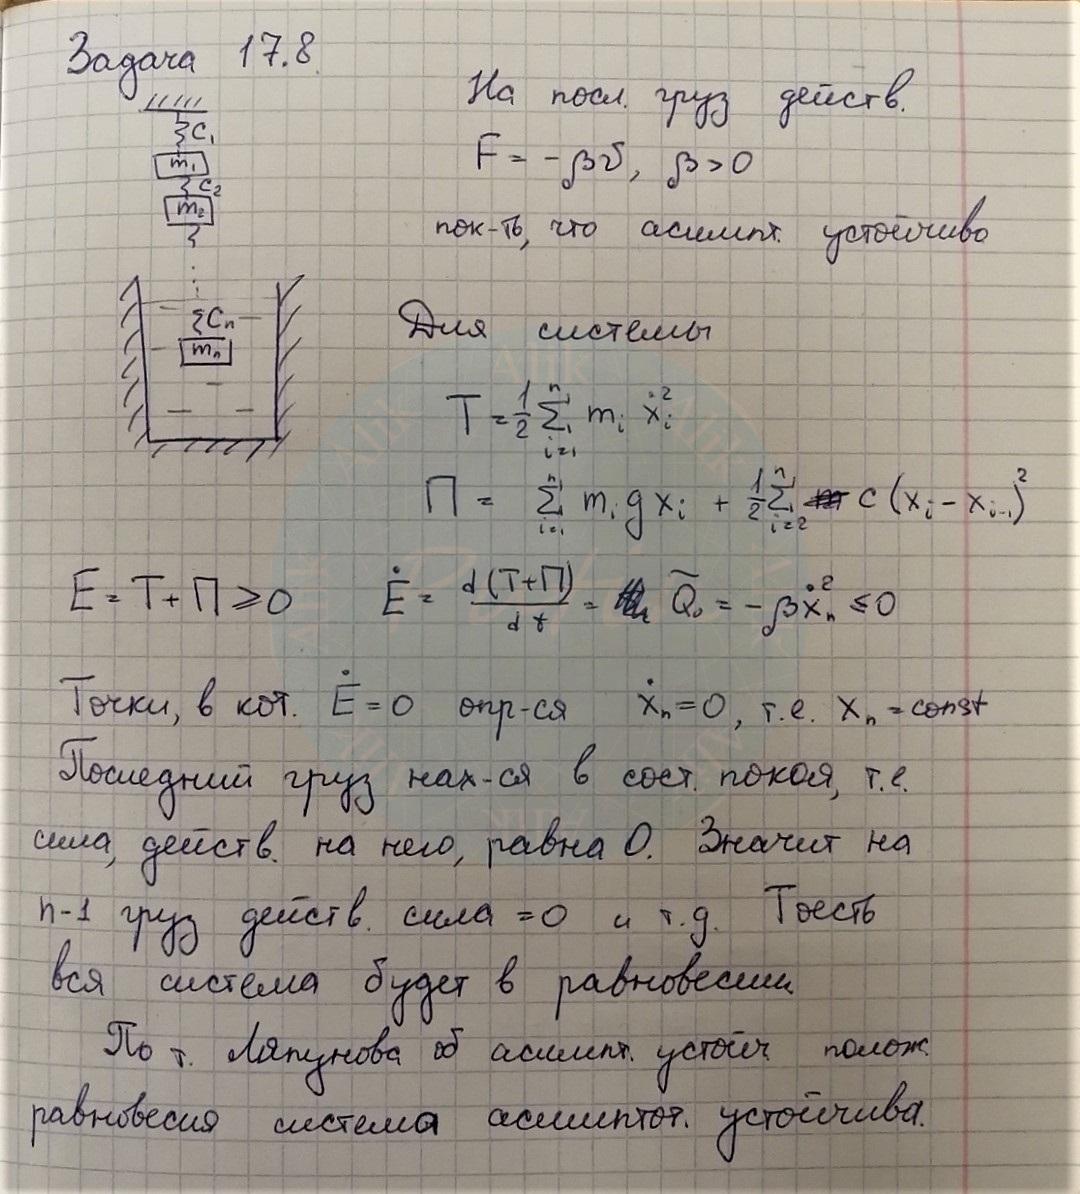 Задача 17.8
На посл. груз действ.
F = -βv, β>0
пок-ть, что асимпт. устойчиво
c₁
m₁
c₂
m₂
cₙ
mₙ
Для системы
T = 1/2 Σᵢ₌₁ⁿ mᵢ ẋᵢ²
П = Σᵢ₌₁ⁿ mᵢ g xᵢ + 1/2 Σᵢ₌₂ⁿ c (xᵢ - xᵢ₋₁)²
E = T + П ⩾ 0 Ė = d(T+П)/dt = Q̃₀ = -βẋₙ² ≤ 0
Точки, в кот. Ė = 0 опр-ся ẋₙ = 0, т.е. xₙ = const
Последний груз нах-ся в сост. покоя, т.е.
сила, действ. на него, равна 0. Значит на
n-1 груз действ. сила = 0 и т.д. Тоесть
вся система будет в равновесии.
По т. Ляпунова об асимпт. устойч полож.
равновесия система асимптот. устойчива.
Alik